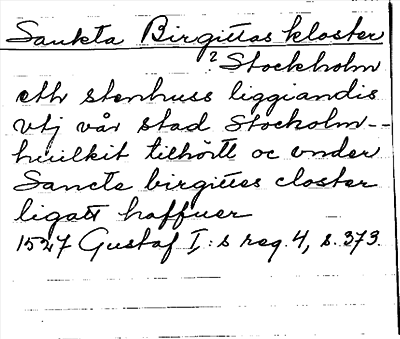 Sankta Birgittas kloster
? Stockholm
eth stenhuss liggiandis
vtj vår stad Stocholm--
huilkit tilhörtt oc vnder
Sancte birgittes closter
ligatt haffuer
1527 Gustaf I:s reg. 4, s. 373.